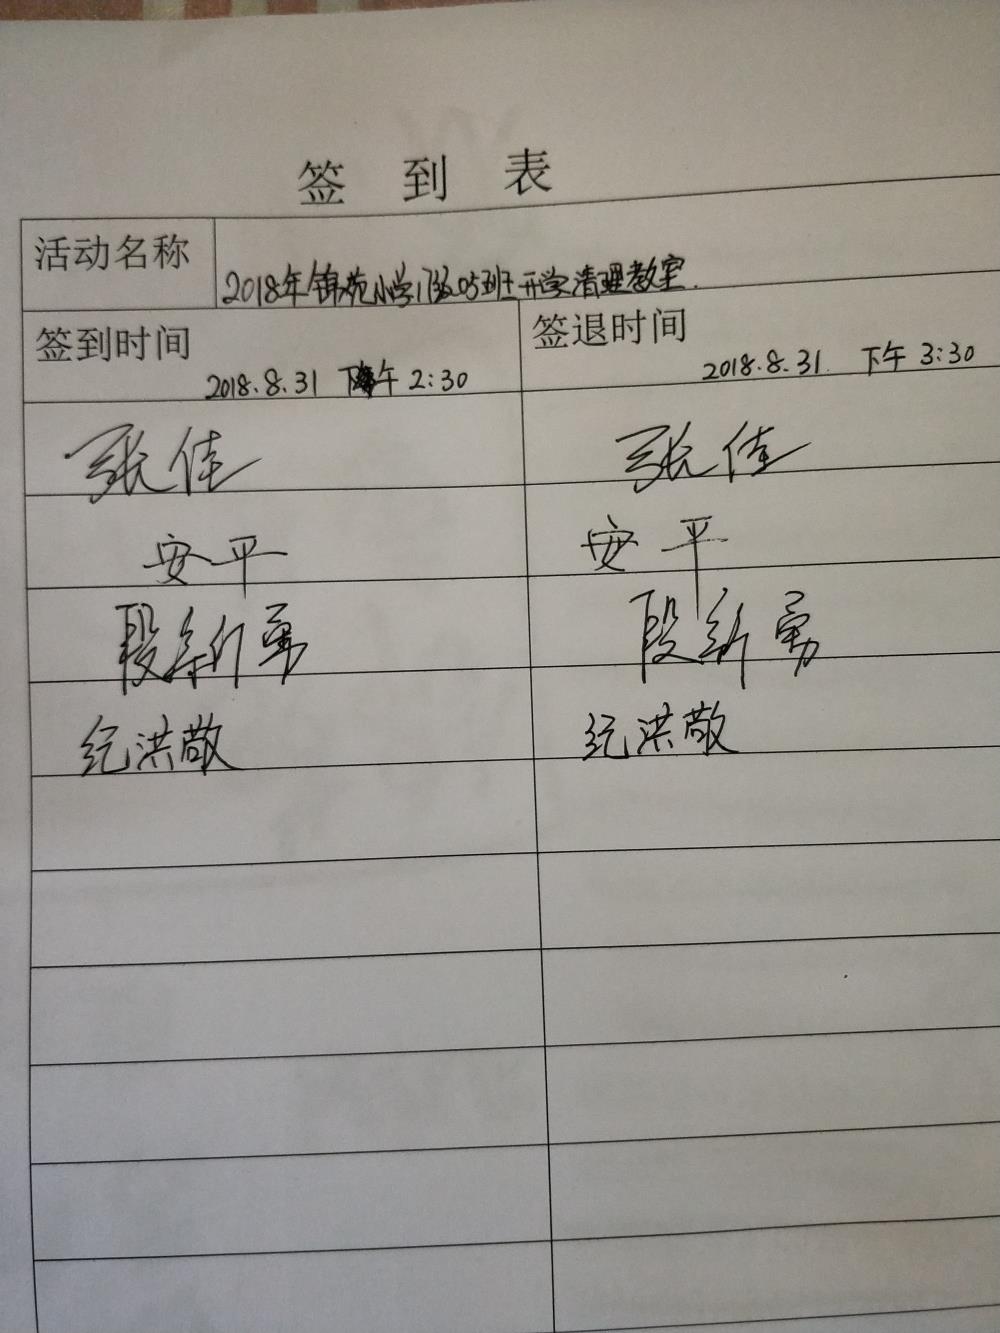 签到表
活动名称
2018年锦苑小学1级05班开学清理教室.
签到时间
签退时间
2018.8.31 下午2:30
2018.8.31. 下午3:30
张佳
张佳
安平
安平
段新勇
段新勇
纪洪敬
纪洪敬